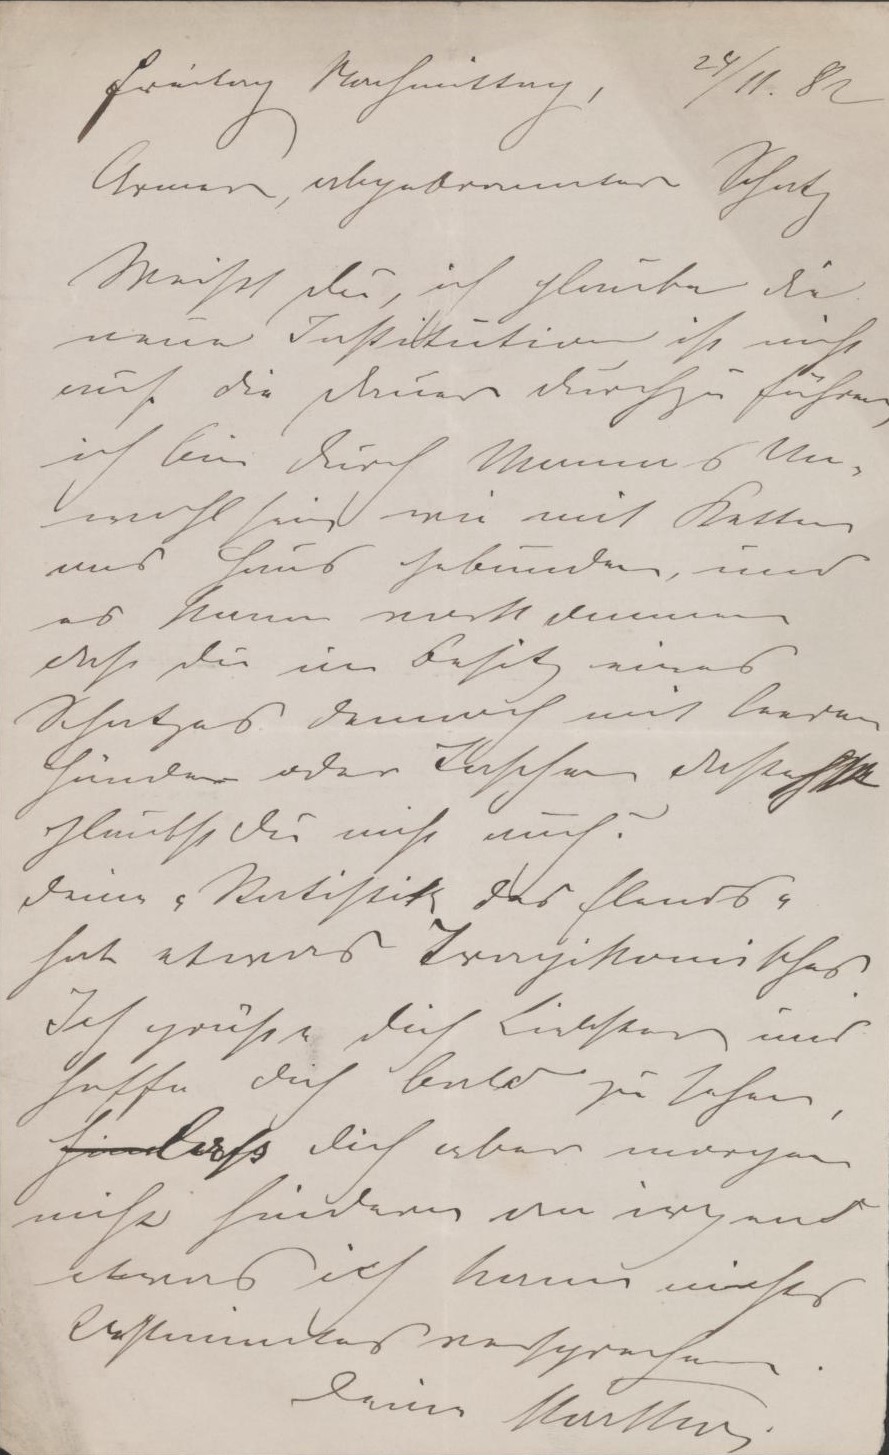 Freitag Nachmittag, 24/11. 82
Armer, abgebrannter Schatz
Weißt Du, ich glaube die
neue Institution ist nicht
auf die Dauer durchzuführen,
ich bin durch Mamas Un-
wohlsein wie mit Ketten
ans Haus gebunden, und
es kann
daß Du im Besitz eines
Schatzes dennoch mit leeren
Händen oder Taschen dastehst
glaubst Du nicht auch?
Deine „Statistik des Elends“
hat etwas Tragikomisches
Ich grüße Dich Liebster und
hoffe Dich bald zu sehen,
laß Dich aber morgen
nicht hindern an irgend
etwas ich kann nichts
Bestimmtes versprechen.
Deine Martha.